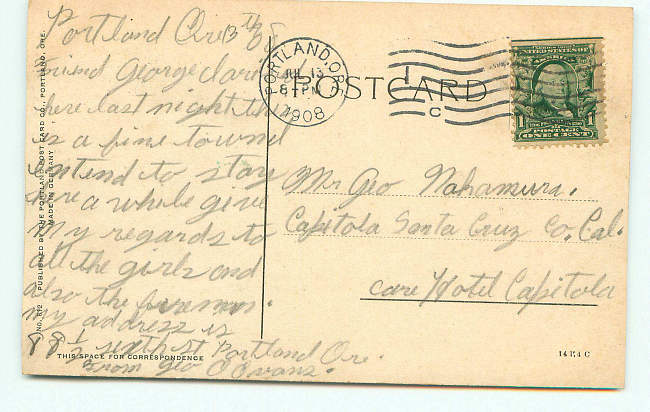 Portland Ore 13th 08
friend George I arrived
here last night this
is a fine town I
intend to stay
here a while give
my regards to
all the girls and
also the
my address is
88 1/2 sixth st Portland Ore.
From Geo O Evans.
THIS SPACE FOR CORRESPONDENCE
NO. 612 PUBLISHED BY THE PORTLAND POST CARD CO., PORTLAND, ORE.
MADE IN GERMANY
PORTLAND, ORE.
JUL 13
8 PM
1908
POSTCARD
1
C
UNITED STATES OF AMERICA
1 1
POSTAGE
ONE CENT
Mr Geo Nakamura.
Capitola Santa Cruz Co. Cal.
care Hotel Capitola